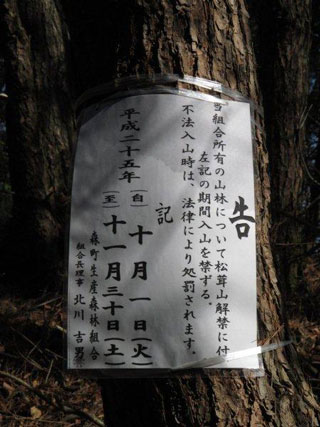 告
当組合所有の山林について松茸山解禁に付
左記の期間入山を禁ずる。
不法入山時は、法律により処罰されます。
記
平成二十五年
(自) 十月一日(火)
(至) 十一月三十日(土)
森町生産森林組合
組合長理事 北川吉男